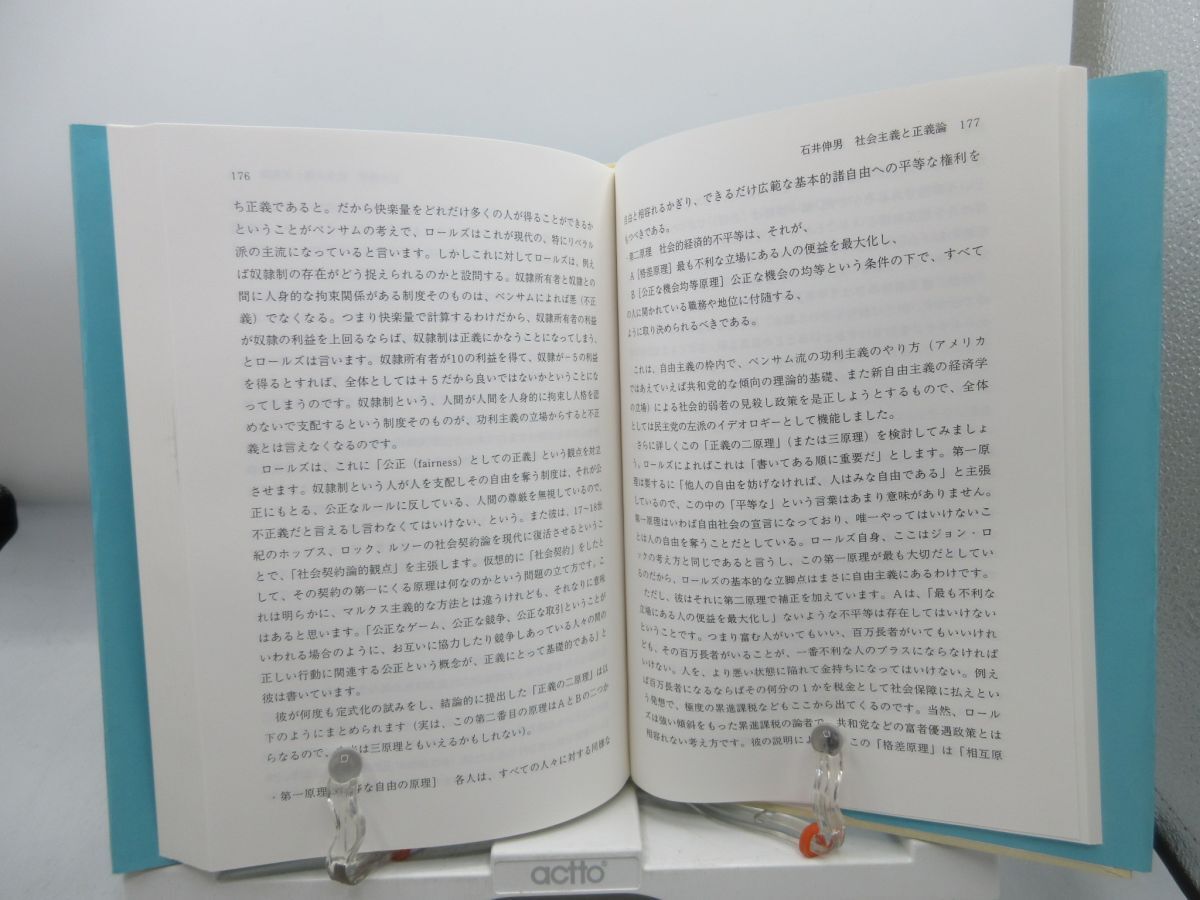 176
ち正義であると。だから快楽量をどれだけ多くの人が得ることができるか
ということがベンサムの考えで、ロールズはこれが現代の、特にリベラル
派の主流になっていると言います。しかしこれに対してロールズは、例え
ば奴隷制の存在がどう捉えられるのかと設問する。奴隷所有者と奴隷との
間に人身的な拘束関係がある制度そのものは、ベンサムによれば悪（不正
義）でなくなる。つまり快楽量で計算するわけだから、奴隷所有者の利益
が奴隷の利益を上回るならば、奴隷制は正義にかなうことになってしまう、
とロールズは言います。奴隷所有者が10の利益を得て、奴隷が−5の利益
を得るとすれば、全体としては＋5だから良いではないかということにな
ってしまうのです。奴隷制という、人間が人間を人身的に拘束し人格を認
めないで支配するという制度そのものが、功利主義の立場からすると不正
義とは言えなくなるのです。
ロールズは、これに「公正（fairness）としての正義」という観点を対立
させます。奴隷制という人が人を支配しその自由を奪う制度は、それが公
正にもとる、公正なルールに反している、人間の尊厳を無視しているので、
不正義だと言えるし言わなくてはいけない、という。また彼は、17〜18世
紀のホッブス、ロック、ルソーの社会契約論を現代に復活させるというこ
とで、「社会契約論的観点」を主張します。仮想的に「社会契約」をしたと
して、その契約の第一にくる原理は何なのかという問題の立て方です。こ
れは明らかに、マルクス主義的な方法とは違うけれども、それなりに意味
はあると思います。「公正なゲーム、公正な競争、公正な取引ということが
いわれる場合のように、お互いに協力したり競争しあっている人々の間の
正しい行動に関連する公正という概念が、正義にとって基礎的である」と
彼は書いています。
彼が何度も定式化の試みをし、結論的に提出した「正義の二原理」は以
下のようにまとめられます（実は、この第二番目の原理はAとBの二つか
らなるので、 は三原理ともいえるかもしれない）。
・第一原理 等な自由の原理］ 各人は、すべての人々に対する同様な
石井伸男 社会主義と正義論 177
自由と相容れるかぎり、できるだけ広範な基本的諸自由への平等な権利を
もつべきである。
・第二原理 社会的経済的不平等は、それが、
A［格差原理］最も不利な立場にある人の便益を最大化し、
B［公正な機会均等原理］公正な機会の均等という条件の下で、すべて
の人に開かれている職務や地位に付随する、
ように取り決められるべきである。
これは、自由主義の枠内で、ベンサム流の功利主義のやり方（アメリカ
ではあえていえば共和党的な傾向の理論的基礎、また新自由主義の経済学
の立場）による社会的弱者の見殺し政策を是正しようとするもので、全体
としては民主党の左派のイデオロギーとして機能しました。
さらに詳しくこの「正義の二原理」（または三原理）を検討してみましょ
う。ロールズによればこれは「書いてある順に重要だ」とします。第一原
理は要するに「他人の自由を妨げなければ、人はみな自由である」と主張
しているので、この中の「平等な」という言葉はあまり意味がありません。
第一原理はいわば自由社会の宣言になっており、唯一やってはいけないこ
とは人の自由を奪うことだとしている。ロールズ自身、ここはジョン・ロ
ックの考え方と同じであると言うし、この第一原理が最も大切だとしてい
るのだから、ロールズの基本的な立脚点はまさに自由主義にあるわけです。
ただし、彼はそれに第二原理で補正を加えています。Aは、「最も不利な
立場にある人の便益を最大化し」ないような不平等は存在してはいけない
ということです。つまり富む人がいてもいい、百万長者がいてもいいけれ
ども、その百万長者がいることが、一番不利な人のプラスにならなければ
いけない。人を、より悪い状態に陥れて金持ちになってはいけない。例え
ば百万長者になるならばその何分の1かを税金として社会保障に払えとい
う発想で、極度の累進課税などもここから出てくるのです。当然、ロール
ズは強い傾斜をもった累進課税の論者で、共和党などの富者優遇政策とは
相容れない考え方です。彼の説明によ この「格差原理」は「相互原
actto